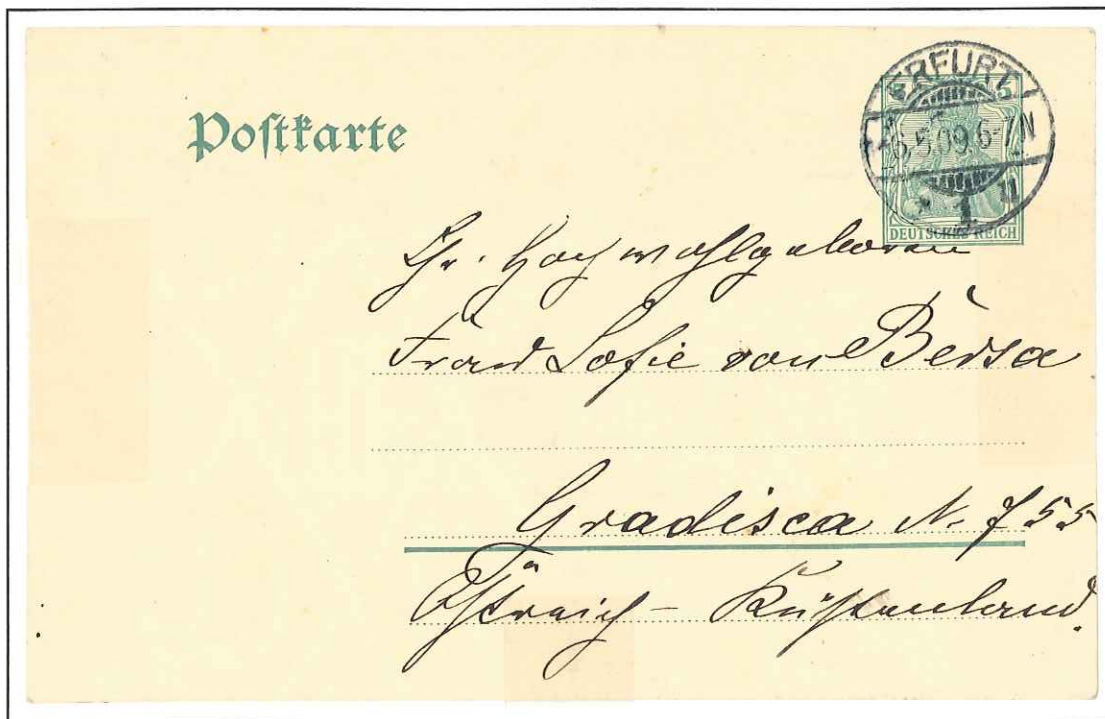 Postkarte
ERFURT
5
6.5.09.6-7N
* 1 u
DEUTSCHES REICH
Ihr. Hochwohlgeboren
Frau Sofie von Bersa
Gradisca N. 755
Östreich - Küstenland.